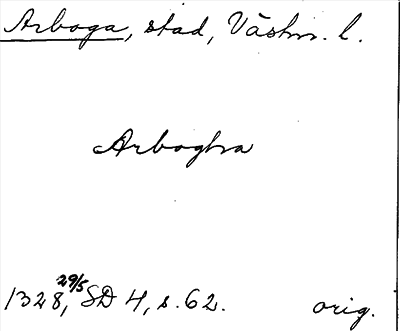 Arboga, stad, Västm. l.
Arbogha
1328, 29/5 SD 4, s. 62. orig.